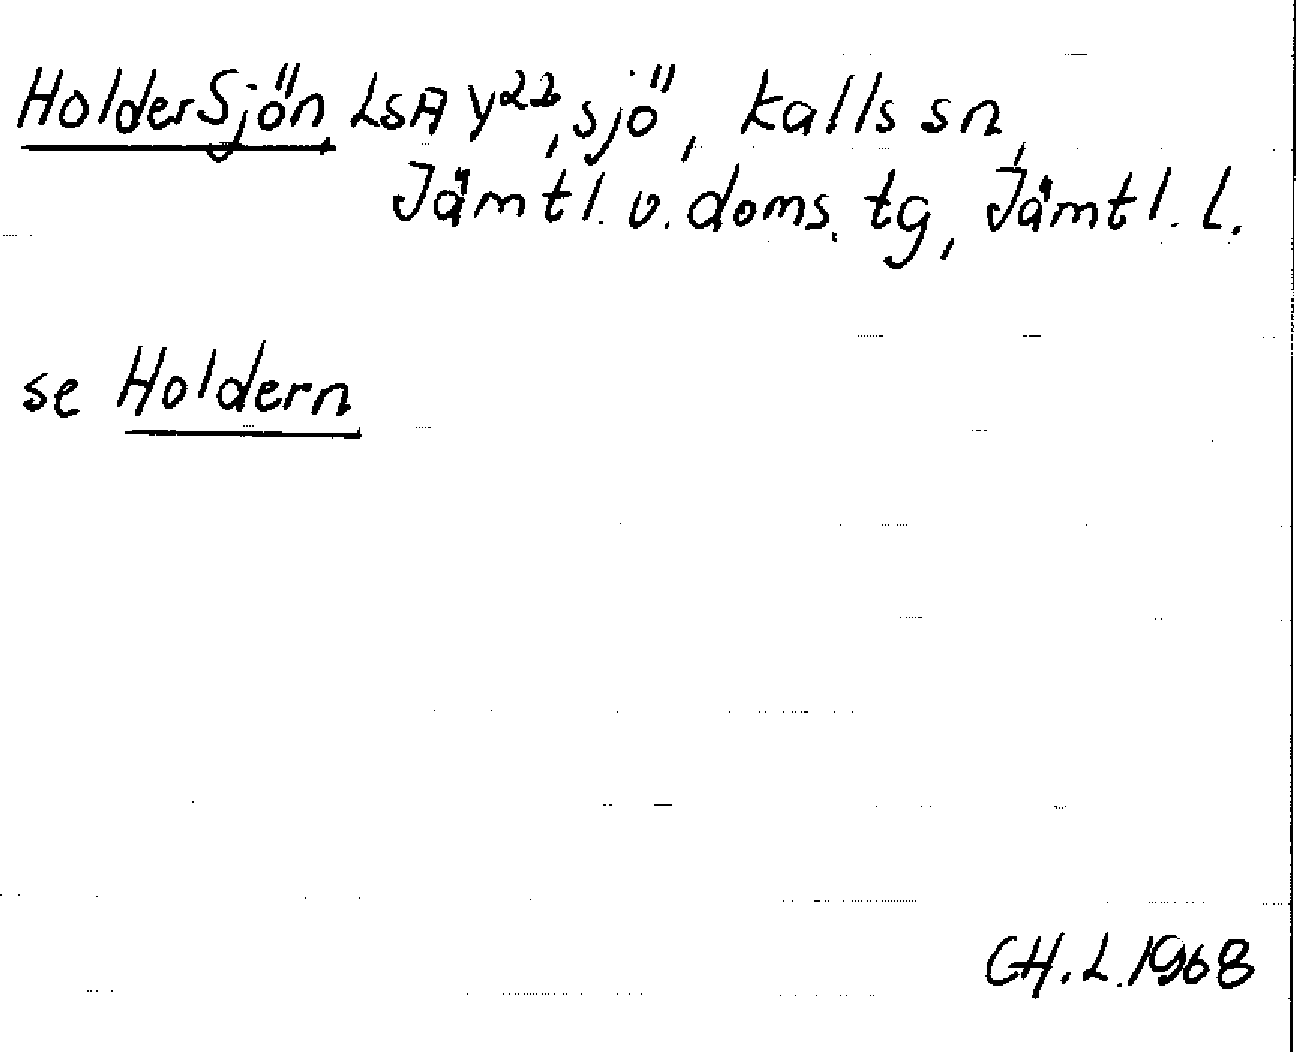 Holdersjön LSA Y22, sjö, Kalls sn,
Jämtl. v. doms. tg, Jämtl. l.
se Holdern
CH. L. 1968